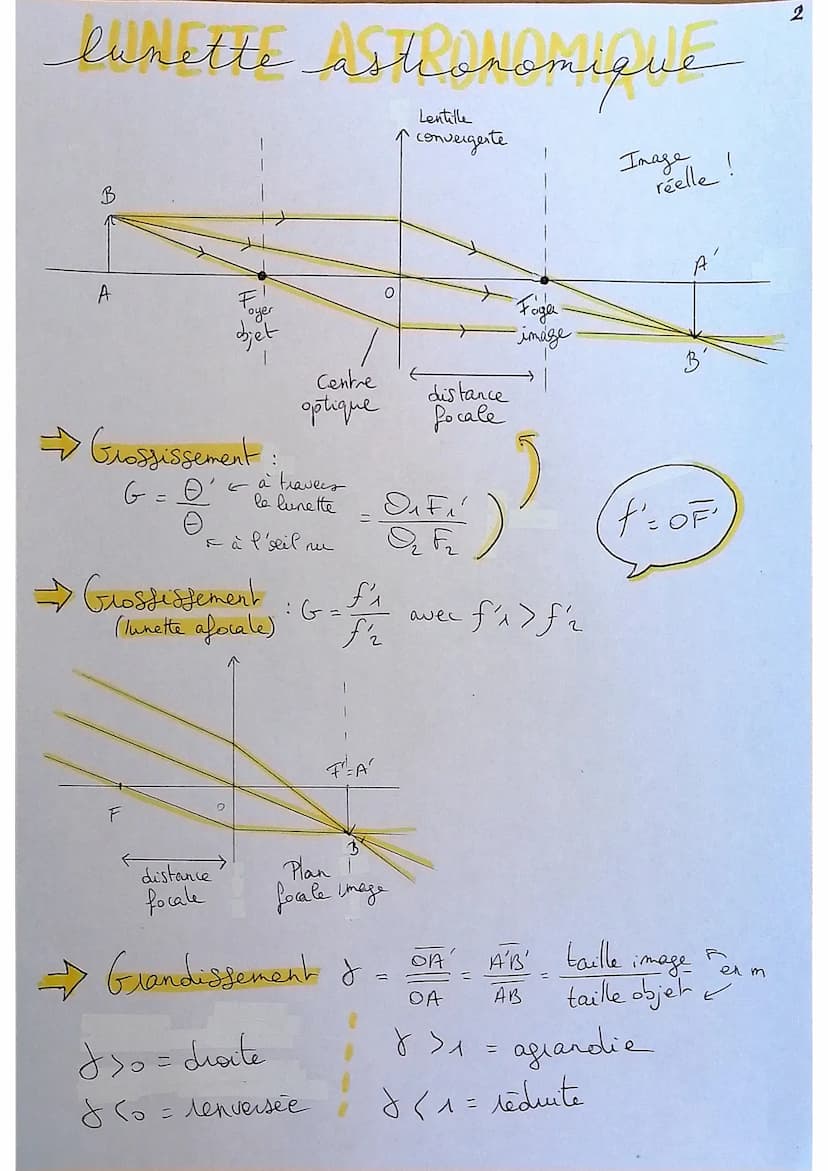 2
LUNETTE ASTRONOMIQUE
lunette astronomique
Lentille
convergente
Image
réelle !
B
A
Foyer
objet
O
Foyer
image
A'
B'
Centre
optique
distance
focale
⇒ Grossissement :
G = θ'/θ ← à travers la lunette ← à l'œil nu = O₁F₁'/O₂F₂
f' = OF'
⇒ Grossissement (lunette afocale) : G = f'₁/f'₂ avec f'₁ > f'₂
F'=A'
F
O
B
distance
focale
Plan
focale image
⇒ Grandissement γ = OA'/OA = A'B'/AB = taille image/taille objet en m
γ > 0 = droite
γ > 1 = agrandie
γ < 0 = renversée
γ < 1 = réduite